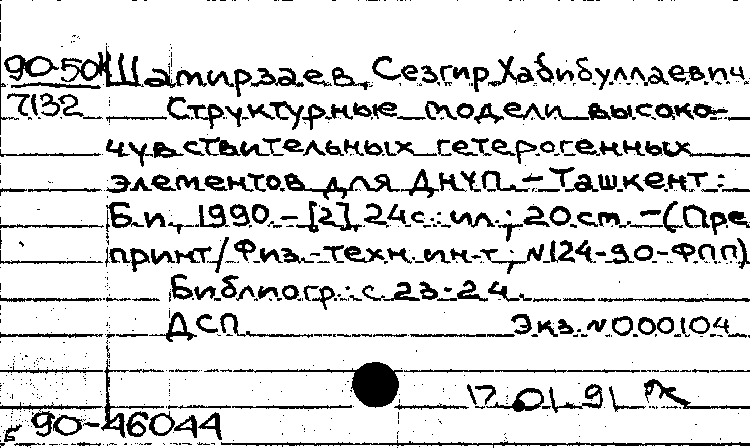 90-504 Шамирзаев, Сезгир Хабибуллаевич
7132 Структурные модели высоко-
чувствительных гетерогенных
элементов для ДНЧП. - Ташкент:
Б.и., 1990. - [2], 24с.: ил.; 20см. - (Пре
принт/ Физ.-техн. ин-т; N124-90-ФПП)
Библиогр.: с. 23-24.
ДСП. Экз. N000104
17.01.91
Б 90-46044